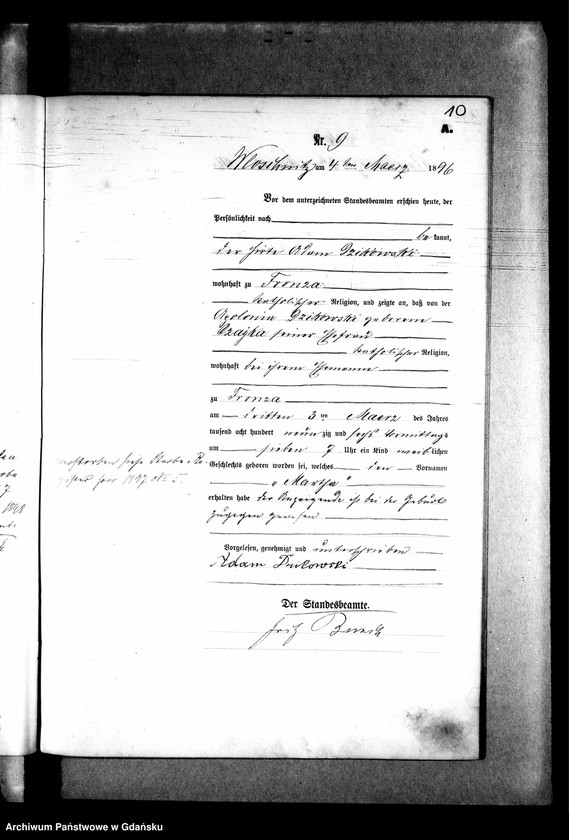 10
A.
Nr. 9
am 4 ten Maerz 1896
Vor dem unterzeichneten Standesbeamten erschien heute, der
Persönlichkeit nach
be kannt,
der Hirte Adam Dzikowski
wohnhaft zu Fronza
katholischer Religion, und zeigte an, daß von der
Apolonia Dzikowski geborene
Czajka seiner Ehefrau
katholischer Religion,
wohnhaft bei ihrem Ehemann
zu Fronza
am dritten 3 ten Maerz des Jahres
tausend acht hundert neun zig und sechs Vormittags
um sieben 7 Uhr ein Kind weib lichen
Geschlechts geboren worden sei, welches den Vornamen
„Martha"
erhalten habe der Anzeigende ist bei der Geburt
zugegen gewesen
Vorgelesen, genehmigt und unterschrieben
Adam
Der Standesbeamte.
Fritz
verstorben siehe Sterbe-Re-
gister pro 1897 No 5.
1898
Archiwum Państwowe w Gdańsku